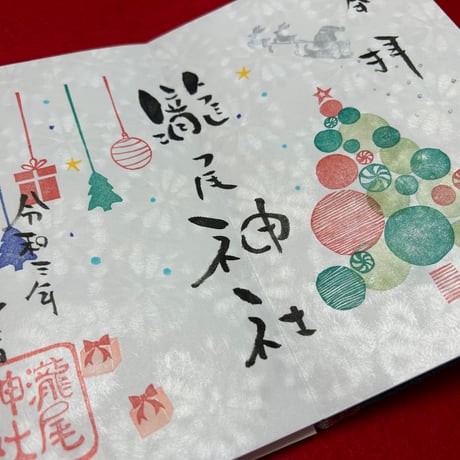 奉拝
瀧尾神社
令和三年
瀧尾
神社